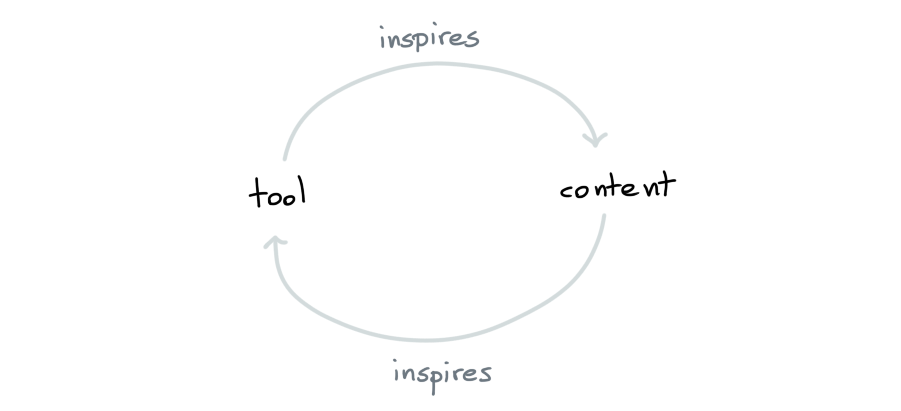 inspires
tool
content
inspires